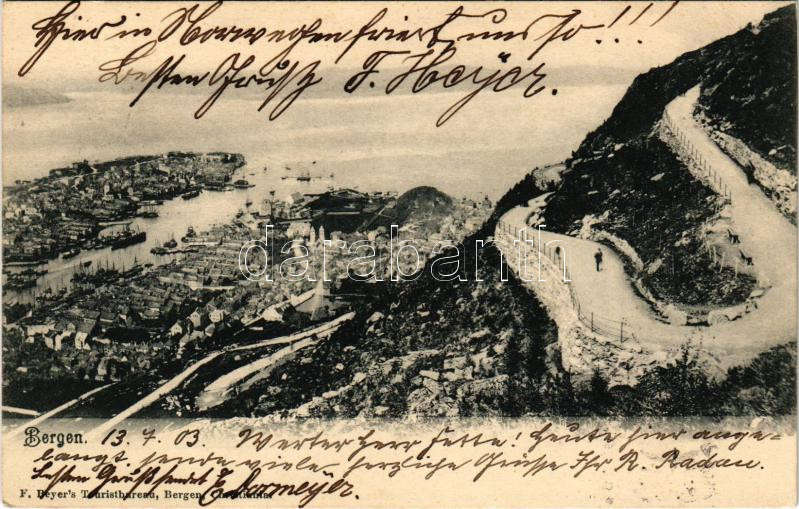 Hier in Norwegen friert uns so!!!
Besten Gruß F. Heyer.
darabanth
Bergen. 13.7.03. Werter Herr Fette! Heute hier ange-
langt, sende viele herzliche Grüsse Ihr R. Radau.
Besten Gruß sendet
F. Beyer's Touristbureau, Bergen, Christiania.